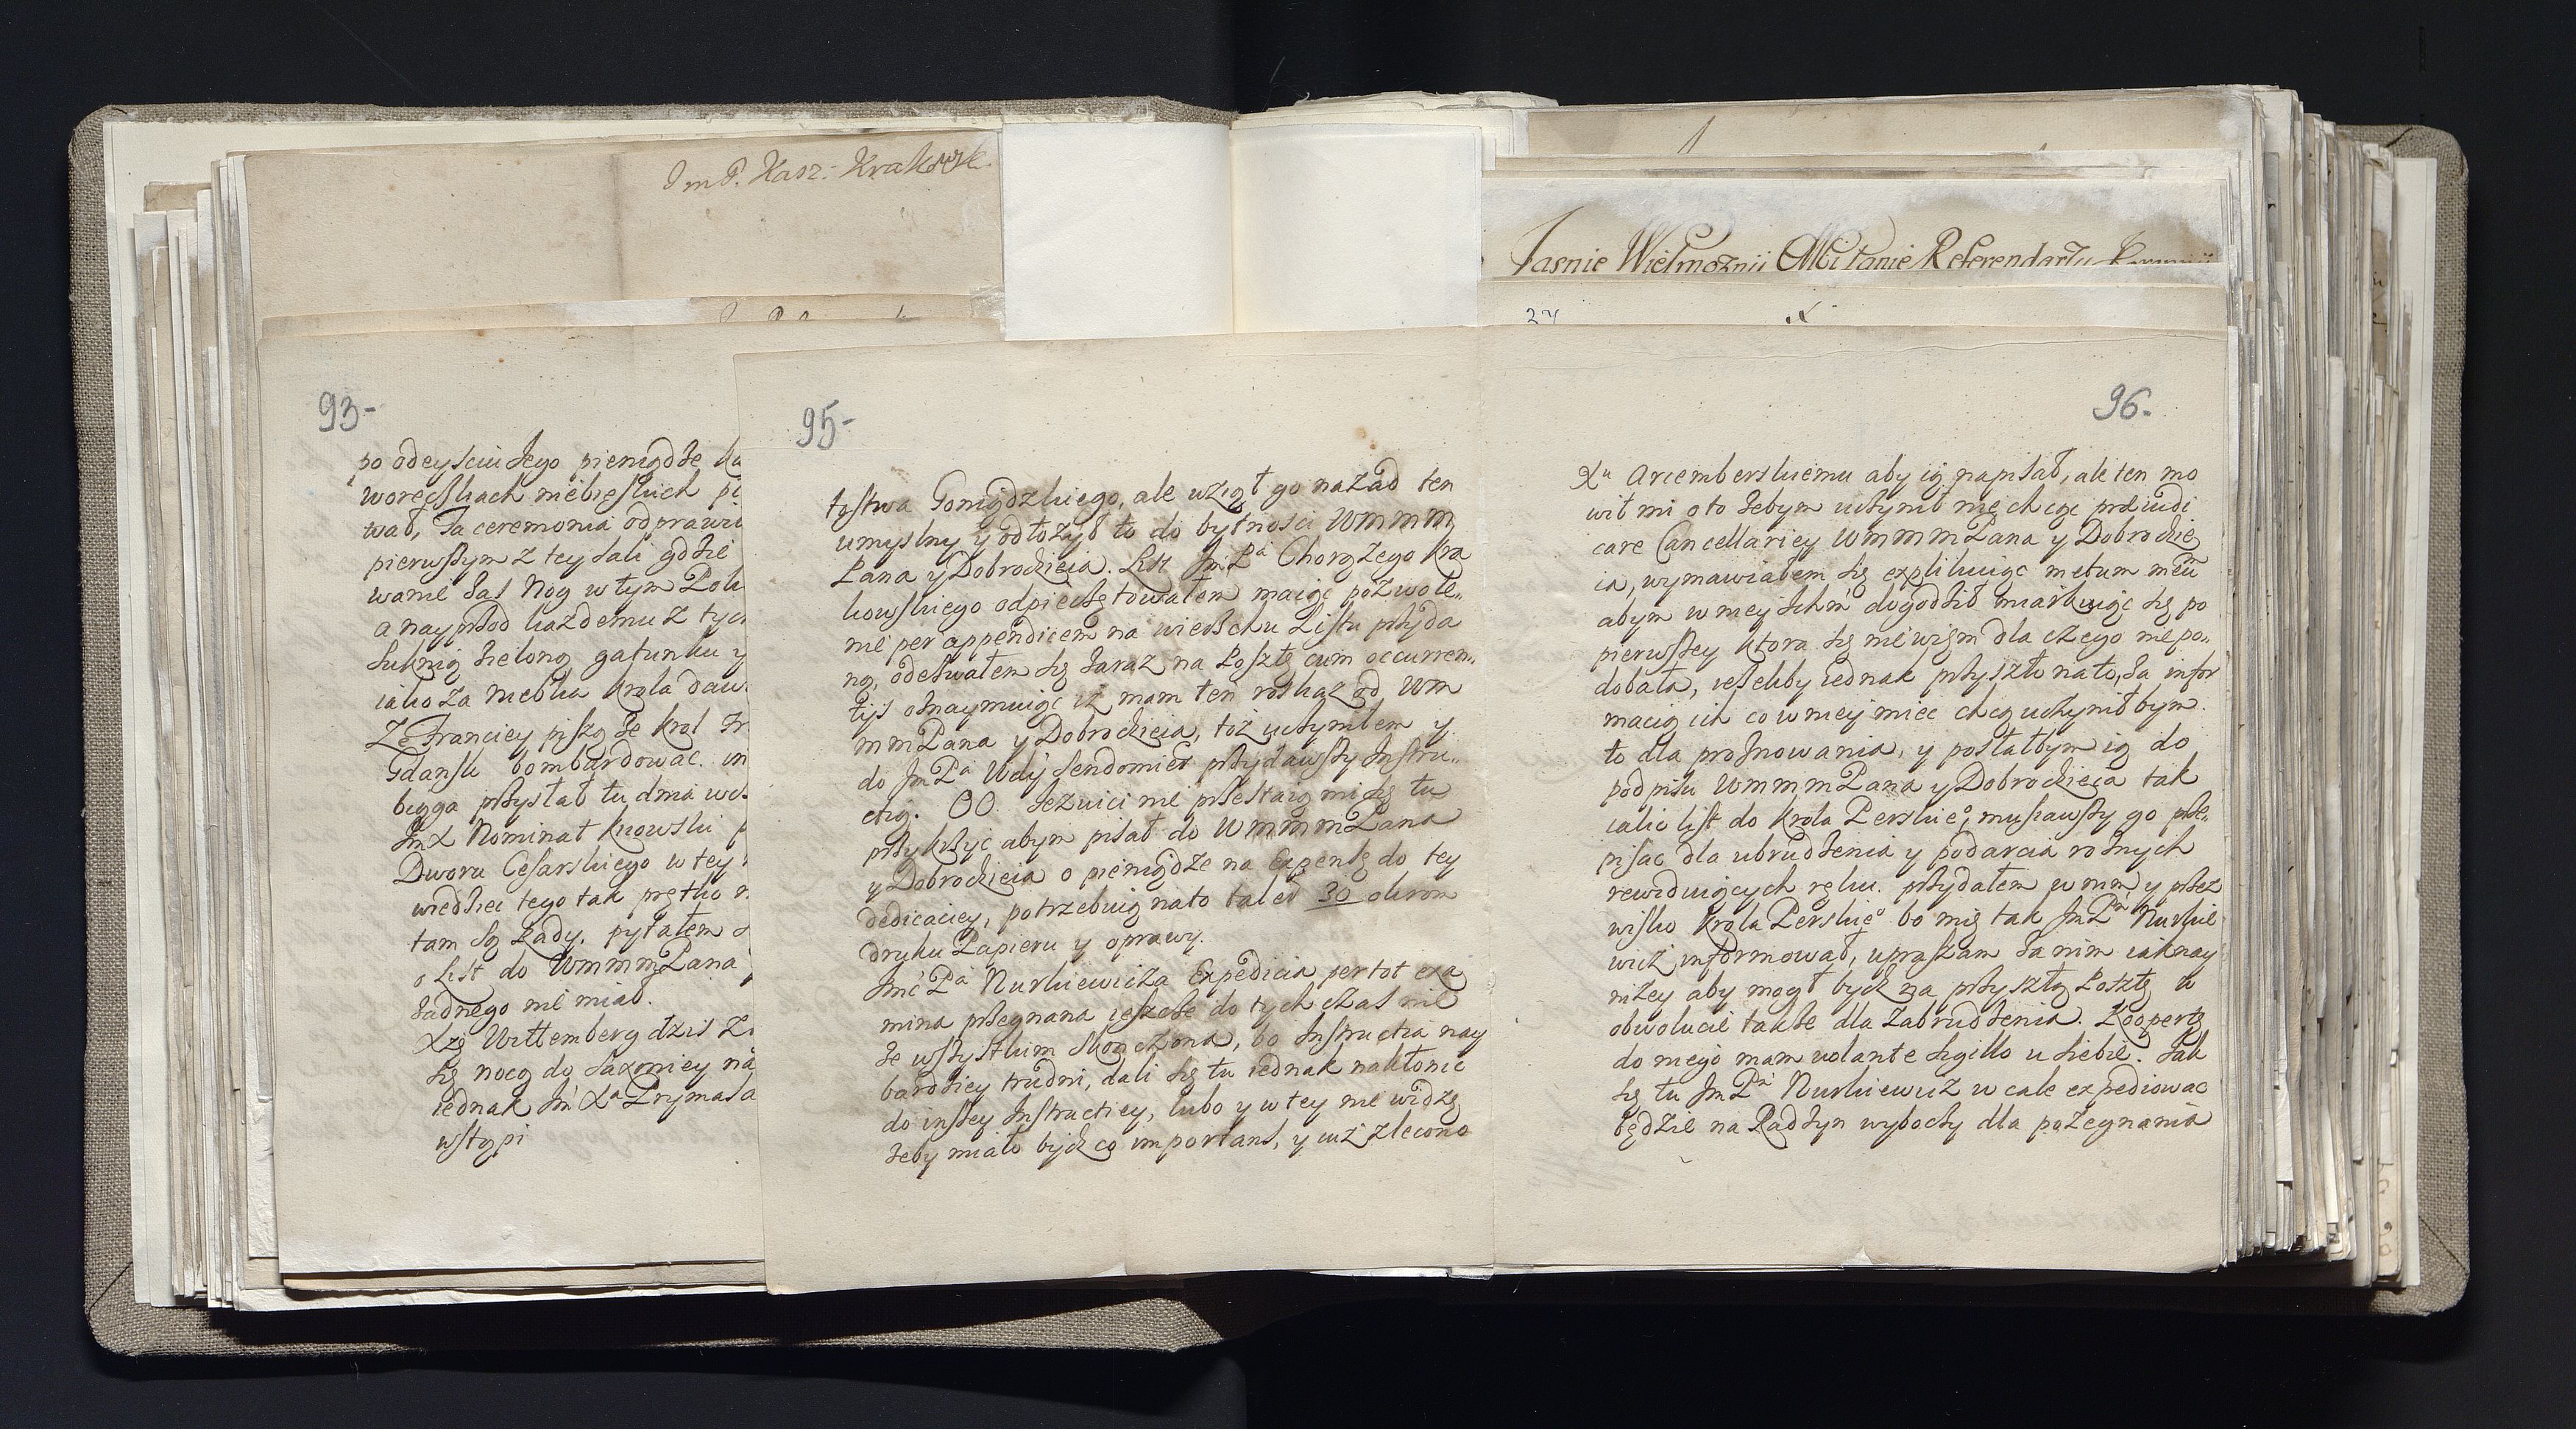 Im P. Kasz: Krakowsk.
Jasnie Wielmoznii Mci Panie Referendarzu
24
93-
po odeysciu Jego pieniądze
woreczkach niebieskich
wał, Ta ceremonia odprawi
pierwszym z tey sali gdzie
wanie zas Nog w tym Pok
a nayprzod kazdemu z tych
suknią zieloną gatunku y
iako za niebka Krola daw
Ze Franciey piszą ze Krol Fr
Gdansk bombardowac. in
biega przysłał tu dnia wcz
Jm X Nominat Kiiowski p
Dworu Cesarskiego w tey
wiedziec tego tak prętko n
tam są Rady. pytałem
o List do WmmmPana
zadnego nie miał.
Xżę Wittemberg dzis z
się nocą do Saxoniey na
iednak Jm Xa Prymasa
wstąpi
95-
tostwa Goniądzkiego, ale wziął go nazad ten
umyslny y odłożył to do bytnosci Wmmm
Pana y Dobrodzieia. List Jm Pa Chorążego Kra
kowskiego odpieczętowałem maiąc pozwole-
nie per appendicem na wierzchu Listu przyda
ną, odezwałem się zaraz na Posztę cum occurren-
tijs oznaymuiąc iż mam ten roskaz od Wm
mmPana y Dobrodzieia, toż uczyniłem y
do Jm Pa Wdy Sendomier przydawszy Instru-
ctią. OO. Jezuici nie przestaią mi się tu
przykrzyc abym pisał do WmmmPana
y Dobrodzieia o pieniądze na Expensę do tey
dedicaciey, potrzebuią nato taler 30 okrom
dryku Papieru y oprawy.
Jmć Pa Nurkiewicza Expedicia per tot exa
mina przegnana ieszcze do tych czas nie
ze wszystkim skonczona, bo Instructia nay
bardziey trudni, dali się tu iednak nakłonic
do inszey Instructiey, lubo y w tey nie widzę
zeby miało bydz co importans, y iuż zlecono
96.
Xu Arcemberskiemu aby ią napisał, ale ten mo
wił mi o to zebym uczynił nie chcąc præiudi
care Cancellariey WmmmPana y Dobrodzie
ia, wymawiałem się explikuiąc metum meū
abym w niey Ichm dogodził miarkuiąc się po
pierwszey ktora się niewiem dla czego niepo-
dobała, iezeliby iednak przyszło nato, za infor
macią ich co w niey miec chcą uczyniłbym
to dla proznowania, y posłałbym ią do
podpisu WmmmPana y Dobrodzieia tak
iako list do Krola Perskieo, musiawszy go prze-
pisac dla ubrudzenia y podarcia roznych
rewiduiących ręku. przydałem y mm y przez
wisko Krola Perskieo bo mię tak Jm Pn Nurkie
wicz informował, upraszam za nim iaknay
niżey aby mogł bydz na przyszłą Posztę w
obwolucie także dla zabrudzenia. Kopertę
do niego mam volante sigillo u siebie. Jak
się tu Jm Pn Nurkiewicz w cale expediowac
będzie na Radzyn wyboczy dla pożegnania